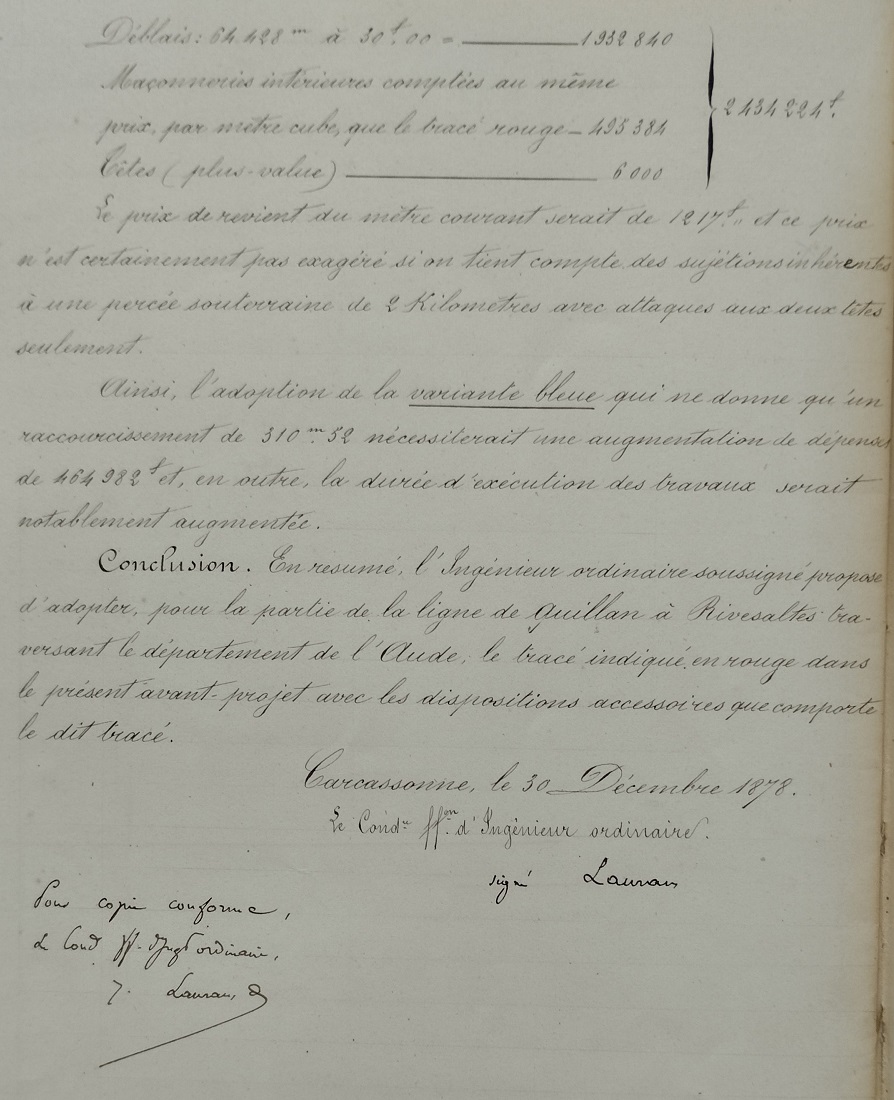 Déblais: 64 428 m à 30f.00 = 1 932 840
Maçonneries intérieures comptées au même
prix, par mètre cube, que le tracé rouge — 495 384
2 434 224f.
Têtes (plus-value) 6 000
Le prix de revient du mètre courant serait de 1217f.,, et ce prix
n'est certainement pas exagéré si on tient compte des sujétions inhérentes
à une percée souterraine de 2 Kilomètres avec attaques aux deux têtes
seulement.
Ainsi, l'adoption de la variante bleue qui ne donne qu'un
raccourcissement de 310m.52 nécessiterait une augmentation de dépenses
de 464 982f et, en outre, la durée d'exécution des travaux serait
notablement augmentée.
Conclusion. En resumé, l'Ingénieur ordinaire soussigné propose
d'adopter, pour la partie de la ligne de Quillan à Rivesaltes tra-
versant le département de l'Aude, le tracé indiqué en rouge dans
le présent avant-projet avec les dispositions accessoires que comporte
le dit tracé.
Carcassonne, le 30 Décembre 1878.
Le Condr ffon d'Ingénieur ordinaire.
signé Lauran
Pour copie conforme,
Le Cond ff. d'Ingr ordinaire,
J. Lauran